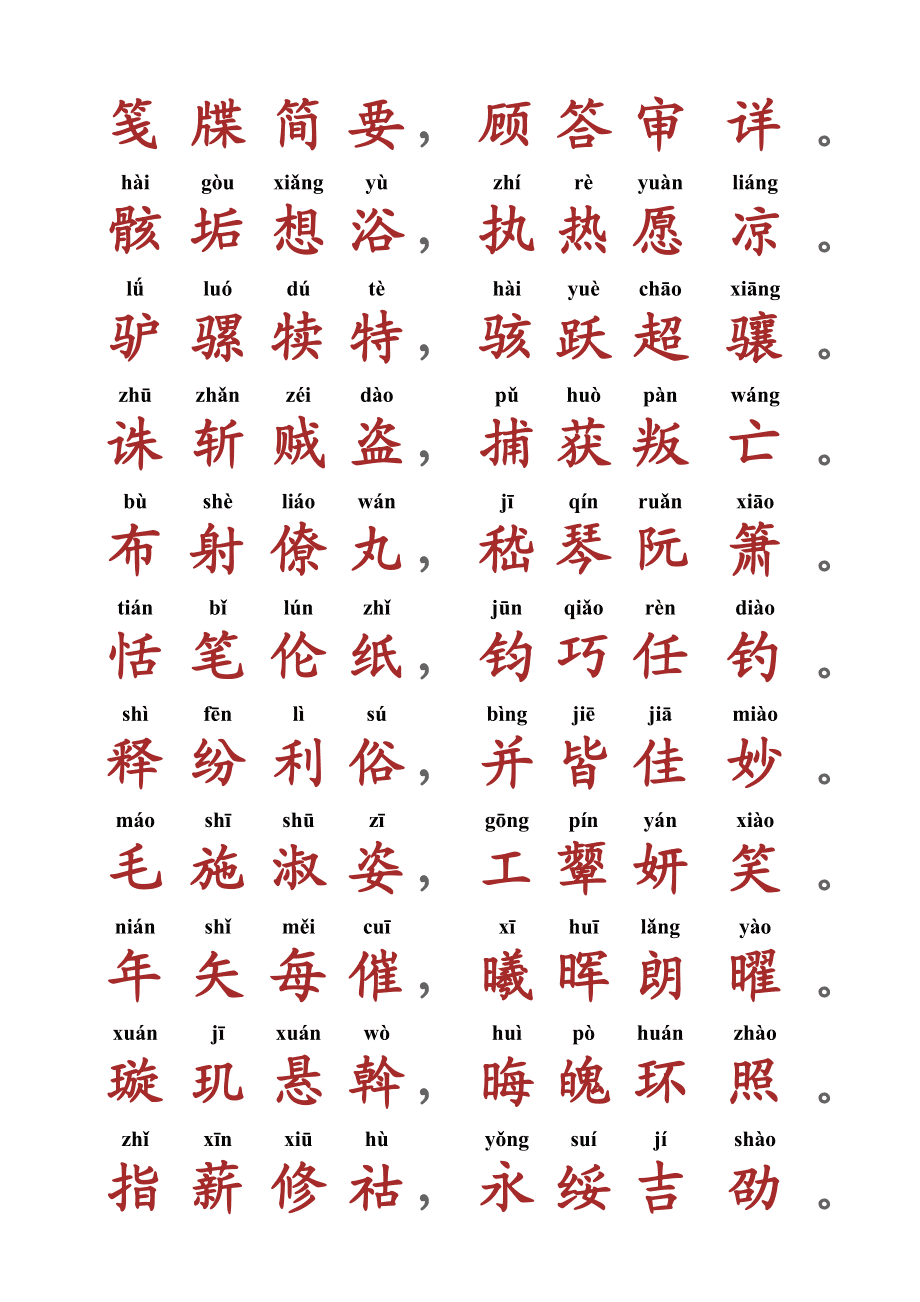 笺牒简要，顾答审详。
hài gòu xiǎng yù zhí rè yuàn liáng
骸垢想浴，执热愿凉。
lǘ luó dú tè hài yuè chāo xiāng
驴骡犊特，骇跃超骧。
zhū zhǎn zéi dào pǔ huò pàn wáng
诛斩贼盗，捕获叛亡。
bù shè liáo wán jī qín ruǎn xiāo
布射僚丸，嵇琴阮箫。
tián bǐ lún zhǐ jūn qiǎo rèn diào
恬笔伦纸，钧巧任钓。
shì fēn lì sú bìng jiē jiā miào
释纷利俗，并皆佳妙。
máo shī shū zī gōng pín yán xiào
毛施淑姿，工颦妍笑。
nián shǐ měi cuī xī huī lǎng yào
年矢每催，曦晖朗曜。
xuán jī xuán wò huì pò huán zhào
璇玑悬斡，晦魄环照。
zhǐ xīn xiū hù yǒng suí jí shào
指薪修祜，永绥吉劭。